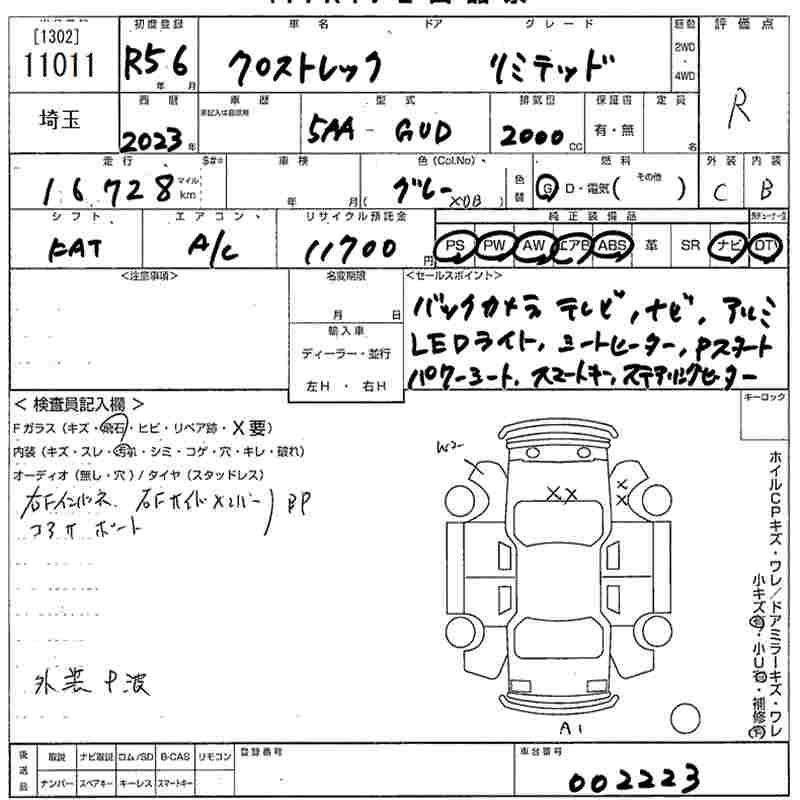 [1302]
11011
初度登録 車名 ドア グレード 駆動 評価点
R5 6 年 月 クロストレック リミテッド 2WD・4WD R
埼玉
西暦 車歴 型式 排気量 保証書 定員
2023 年 未記入は自家用 5AA-GUD 2000 CC 有・無 名
走行 車検 色(Col.No) 燃料 外装 内装
16728 マイル km 年 月 グレー (XDB) 色替 G D・電気( その他 ) C B
シフト エアコン リサイクル預託金 純正装備品
FAT A/C 11700 円 PS PW AW エアB ABS 革 SR ナビ DTV
<注意事項> 名変期限 <セールスポイント>
月 日
バックカメラ テレビ,ナビ,アルミ
輸入車
LEDライト,シートヒーター,Pスタート
ディーラー・並行
パワーシート,スマートキー,ステアリングヒーター
左H・右H
<検査員記入欄> キーロック
Fガラス(キズ・飛石・ヒビ・リペア跡・X要)
内装(キズ・スレ・汚れ・シミ・コゲ・穴・キレ・破れ)
オーディオ(無し・穴)/タイヤ(スタッドレス)
右Fインパネ、右Fサイドメンバー)BP
コアサポート
外装中波
W2
XX
X
X
A1
ホイルCPキズ・ワレ/ドアミラーキズ・ワレ
小キズ有・小U有・補修有
後送品 取説 ナビ取説 ロム/SD B-CAS リモコン 登録番号 車台番号
ナンバー スペアキー キーレス スマートキー 002223